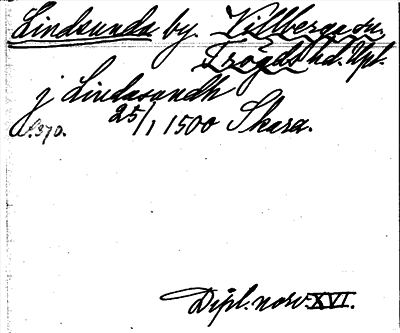 Lindsunda by. Villberga sn.
Trögds hd. Upl.
j Lindasundh
s. 370. 25/1 1500 Skara.
Dipl. norv. XVI.